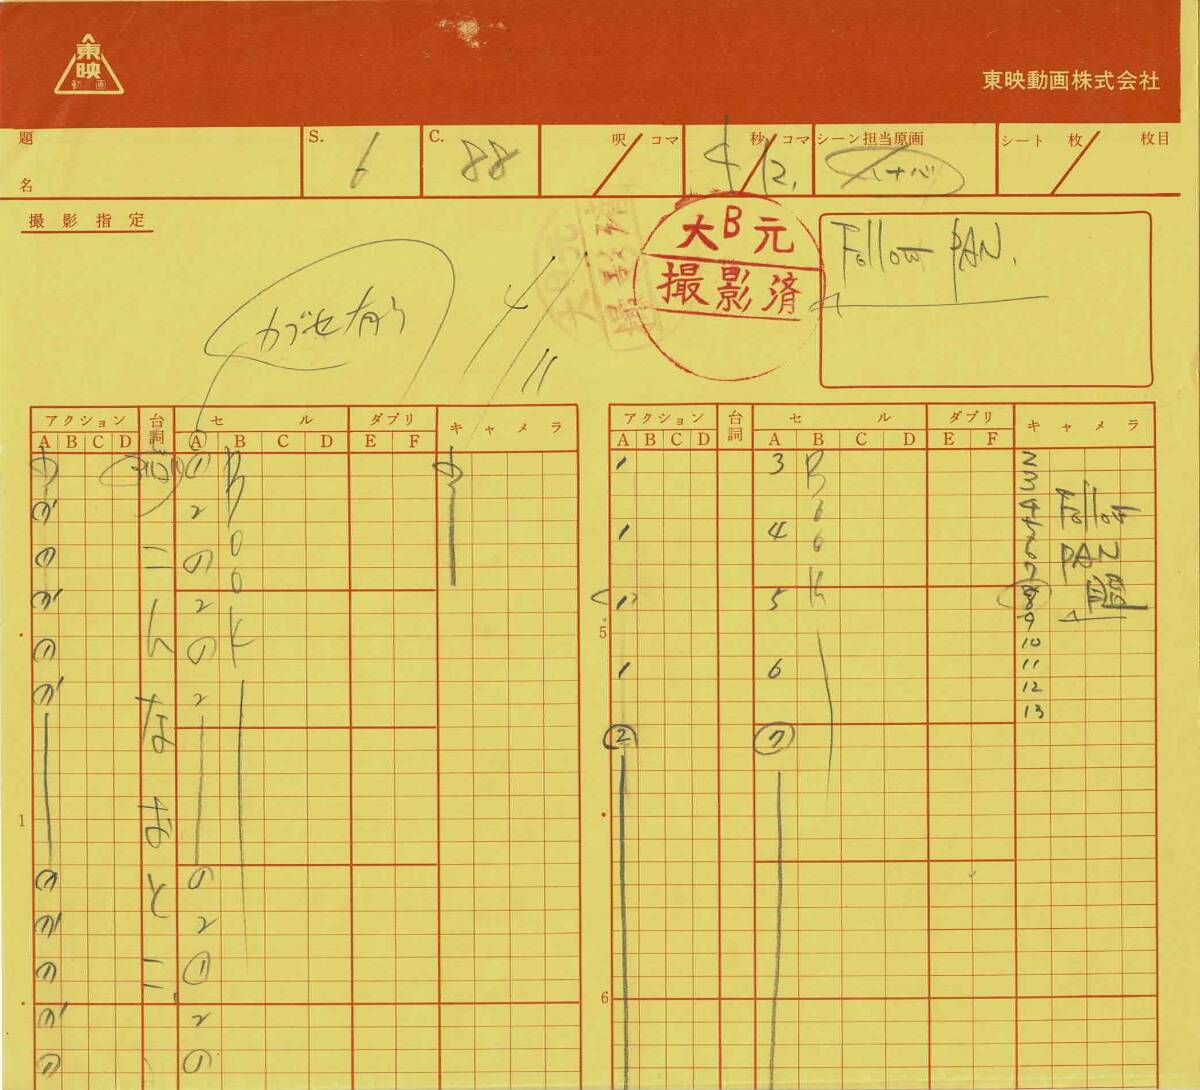 東映
動画
東映動画株式会社
題名
S. 6
C. 88
呎 コマ
秒 コマ
4 / 12.
シーン担当原画
イナバ
シート 枚 枚目
撮影指定
大B元
撮影済
Follow PAN.
カブセ有り
アクション 台詞 セル ダブリ キャメラ
A B C D A B C D E F
アクション 台詞 セル ダブリ キャメラ
A B C D A B C D E F
① ① B ①
①' 2
① ① O
①' 2 O
① ① K
①' 2
こんなおとこ
1
① ①
①' 2
① ①
①' 2
① ①
1 3 B 2
3
4 Follow
1 4 5
6 PAN
7
1' 5 K 8 目盛
5 9
10
1 6 11
12
13
② ⑦
6